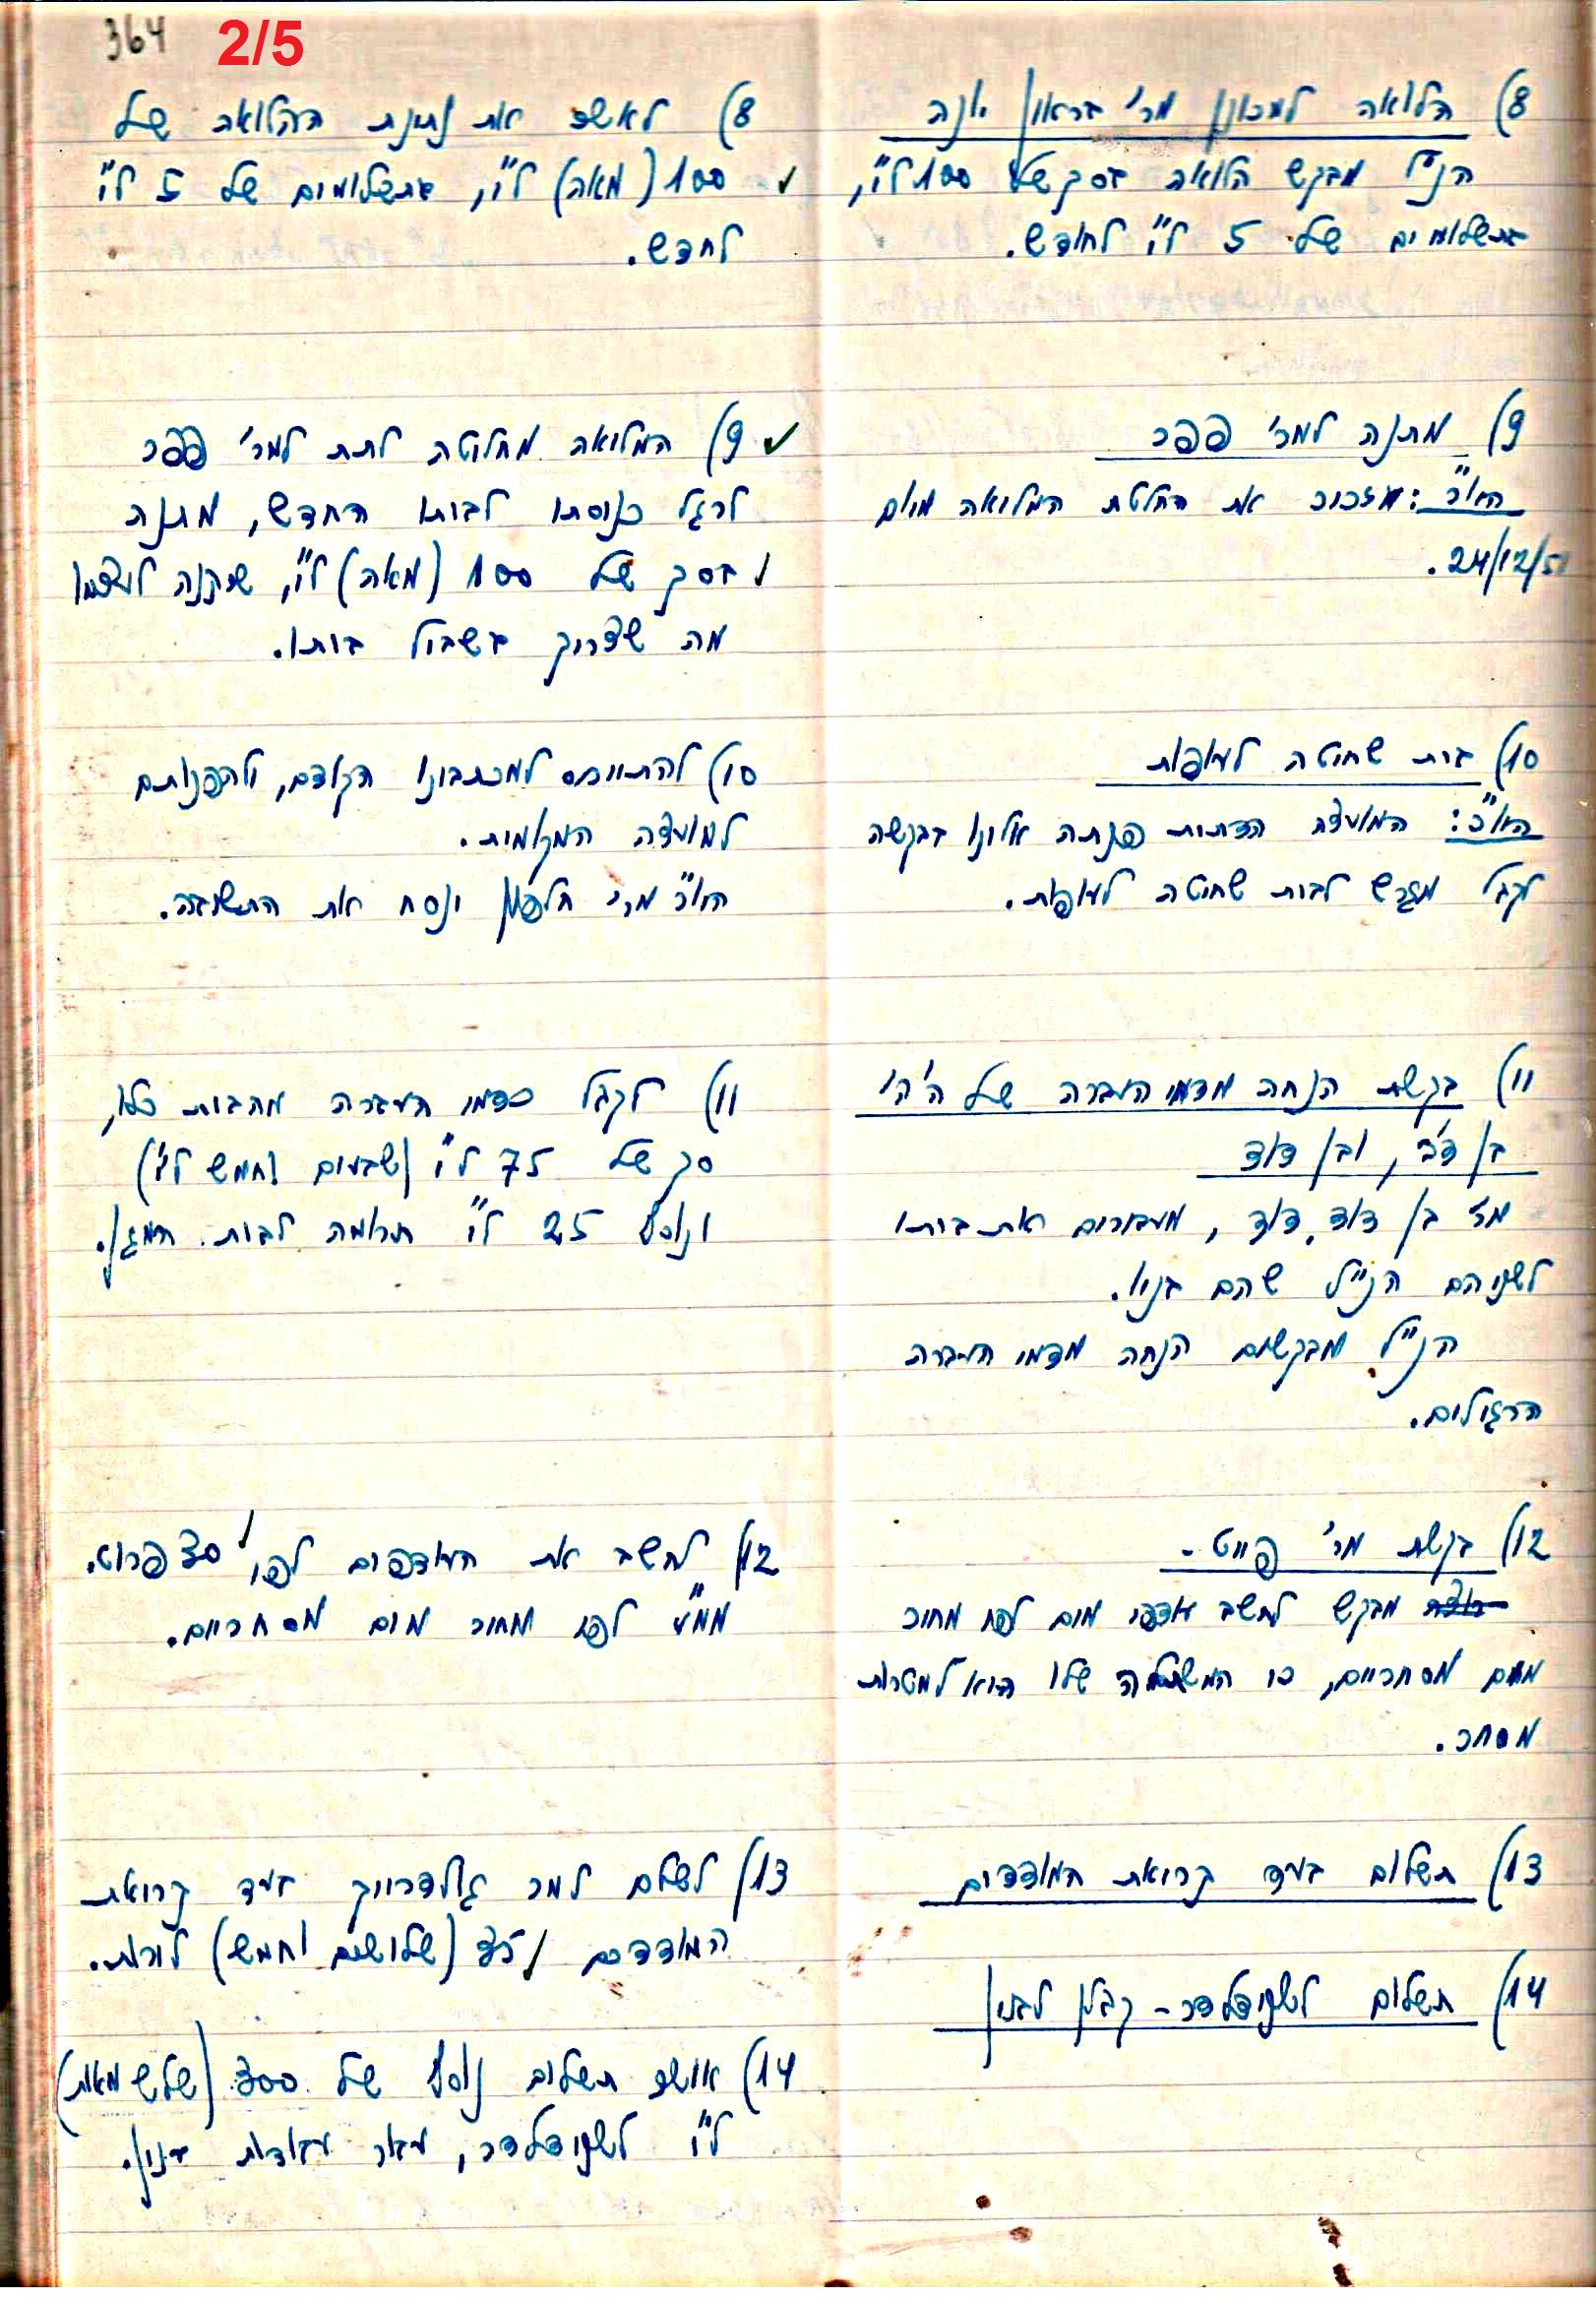 364
2/5
8) הלואה למכונן מר' בראון יונה
הנ"ל מבקש הלואה בסך של 100 ל"י,
בתשלומים של 5 ל"י לחודש.
9) מתנה למר' פפר
היו"ר: מזכיר את החלטת המליאה מיום
24/12/51.
10) בית שחיטה לעופות
היו"ר: המועצה הדתית פנתה אלינו בבקשה
לקבל מגרש לבית שחיטה לעופות.
11) בקשת הנחה מדמי העברה של ה'ה'
בן דוד, ובן דוד
מר בן דוד, דוד, מעבירים את ביתו
לשניהם הנ"ל שהם בניו.
הנ"ל מבקשים הנחה מדמי העברה
הרגילים.
12) בקשת מר' פייט -
מבקש לחשב עודפי מים לפי מחיר
מים מסחריים, כי המשתלה שלו היא למטרות
מסחר.
13) תשלום בעד קריאת המודדים
14) תשלום לשניידלדר - קבלן לבנין
8) לאשר את נתינת ההלואה של
100 (מאה) ל"י, בתשלומים של 5 ל"י
לחדש.
9) המליאה מחליטה לתת למר' פפר
לרגל כניסתו לביתו החדש, מתנה
בסך של 100 (מאה) ל"י, שיקנה לעצמו
מה שצריך בשביל ביתו.
10) להתייחס למכתבינו הקודם, ולהפנותם
למועצה המקומית.
היו"ר מר' חלפון ינסח את התשובה.
11) לקבל כדמי העברה מהבית כלו,
סך של 75 ל"י (שבעים וחמש ל"י)
ונוסף 25 ל"י תרומה לבית המגן.
12) לחשב את העודפים לפי 30 פרוט.
ממ"ע לפי מחיר מים מסחריים.
13) לשלם למר גולדרייך בעד קריאת
המודדים 35 (שלושים וחמש) לירות.
14) אושר תשלום נוסף של 300 (שלש מאות)
ל"י לשניידלדר, עבור עבודות בנין.